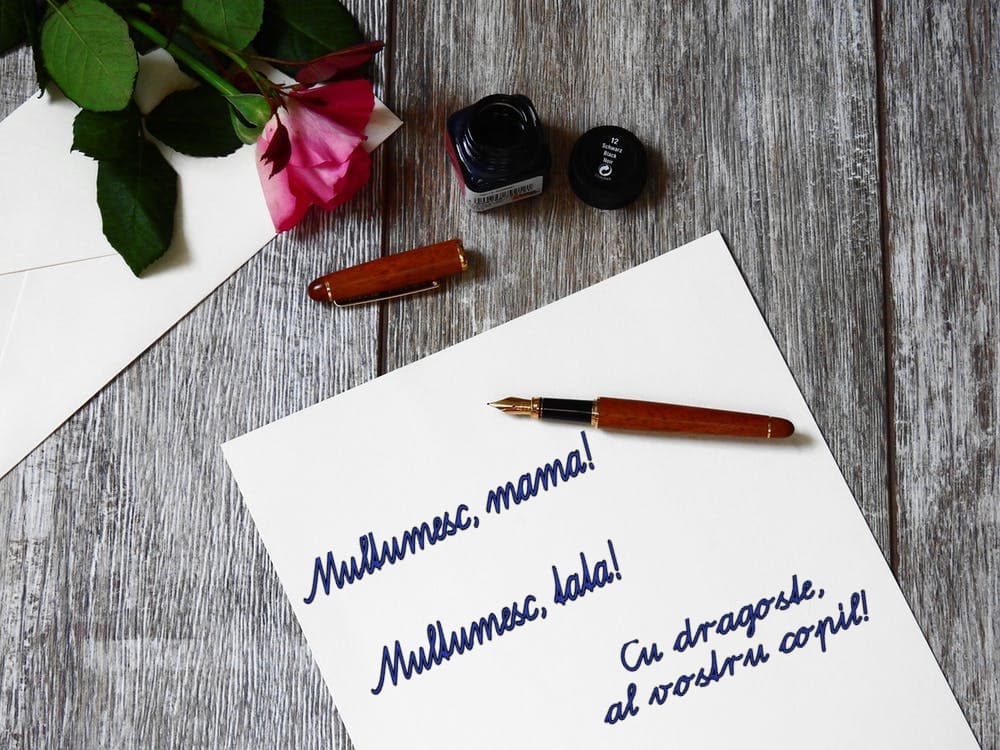 12
Schwarz
Black
Noir
Multumesc, mama!
Multumesc, tata!
Cu dragoste,
al vostru copil!